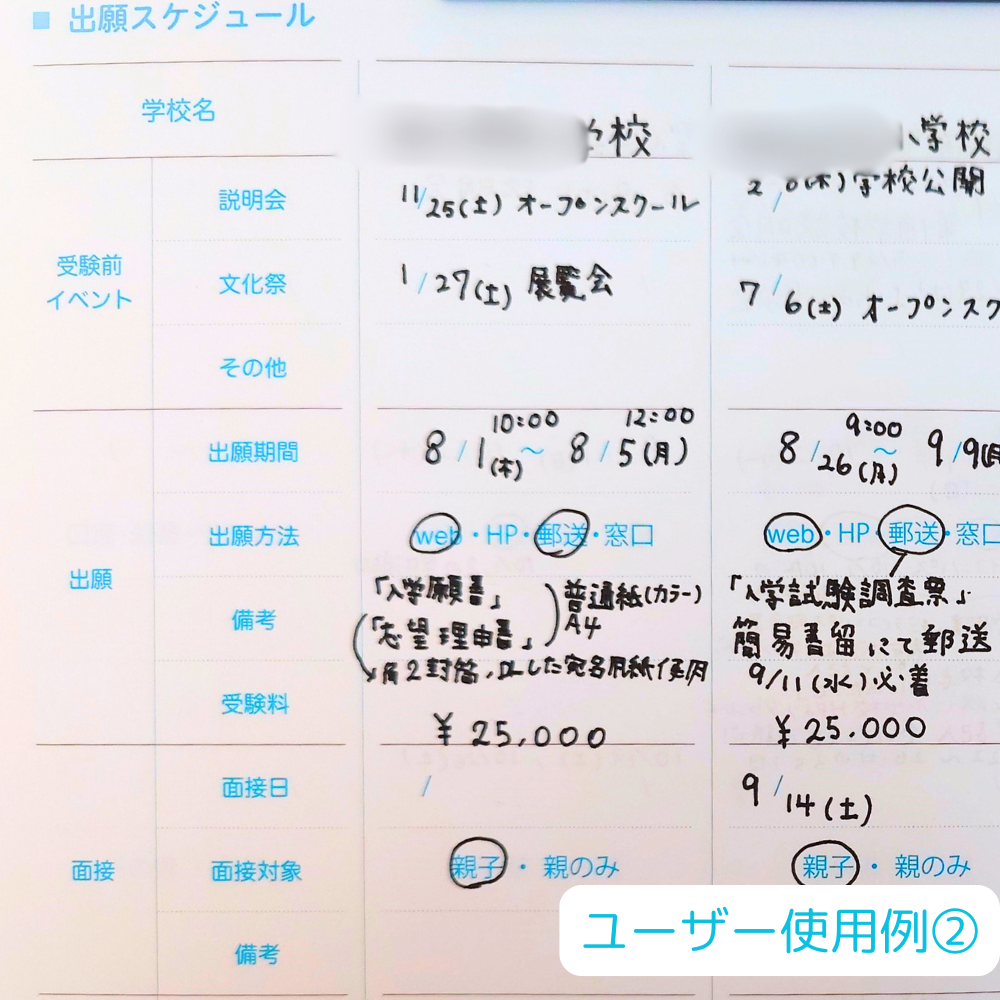 ■ 出願スケジュール
学校名 学校 小学校
受験前イベント
説明会 11/25(土) オープンスクール 2/8(木) 学校公開
文化祭 1/27(土) 展覧会 7/6(土) オープンスク
その他
出願
出願期間 8/1(木) 10:00 〜 8/5(月) 12:00 8/26(月) 9:00 〜 9/9(月
出願方法 web・HP・郵送・窓口 web・HP・郵送・窓口
備考 「入学願書」 「志望理由書」 普通紙(カラー) A4
角2封筒、DLした宛名用紙使用
「入学試験調査票」
簡易書留にて郵送
9/11(水)必着
受験料 ¥25,000 ¥25,000
面接
面接日 / 9/14(土)
面接対象 親子・親のみ 親子・親のみ
備考
ユーザー使用例②